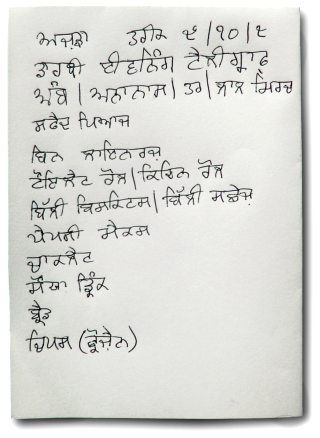 ਅਜ਼ਡਾ ਤਰੀਕ ੬/੧੦/੨
ਡਾਰਬੀ ਈਵਨਿੰਗ ਟੈਲੀਗ੍ਰਾਫ
ਅੰਬ | ਅਨਾਨਾਸ | ਤਰ | ਲਾਲ ਮਿਰਚ
ਸਫੈਦ ਪਿਆਜ
ਬਿਨ ਲਾਇਨਰਜ਼
ਟੌਇਲੈਟ ਰੋਲ | ਕਿਚਿਨ ਰੋਲ
ਬਿੱਲੀ ਬਿਸਕਿਟਸ | ਬਿੱਲੀ
ਪੈਪਸੀ ਮੈਕਸ
ਚਾਕਲੈਟ
ਸੌਖਾ ਡ੍ਰਿੰਕ
ਬ੍ਰੈਡ
ਚਿਪਸ (ਫ੍ਰੋਜ਼ੈਨ)